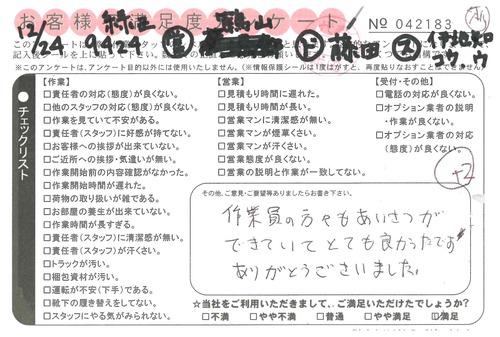 お客様満足度アンケート
No 042183
12/24 9424 鶴山 藤田 伊地知
※このアンケートは、アンケート目的以外には使用いたしません。(※情報保護シールは1度はがすと、再度貼りなおすことはできません)
チェックリスト
【作業】
□責任者の対応(態度)が良くない。
□他のスタッフの対応(態度)が良くない。
□作業を見ていて不安がある。
□責任者(スタッフ)に好感が持てない。
□お客様への挨拶が出来ていない。
□ご近所への挨拶・気遣いが無い。
□作業開始前の内容確認がなかった。
□作業開始時間が遅れた。
□荷物の取り扱いが雑である。
□お部屋の養生が出来ていない。
□作業時間が長すぎる。
□責任者(スタッフ)に清潔感が無い。
□責任者(スタッフ)が汗くさい。
□トラックが汚い。
□梱包資材が汚い。
□運転が不安(下手)である。
□靴下の履き替えをしてない。
□スタッフにやる気がみられない。
【営業】
□見積もり時間に遅れた。
□見積もり時間が長い。
□営業マンに清潔感が無い。
□営業マンが煙草くさい。
□営業マンが汗くさい。
□営業態度が良くない。
□営業の説明と作業が一致してない。
【受付・その他】
□電話の対応が良くない。
□オプション業者の説明・作業が良くない。
□オプション業者の対応(態度)が良くない。
+2
その他、ご意見・ご要望等ありましたらお書き下さい。
作業員の方々もあいさつが
できていてとても良かったです
ありがとうございました。
☆当社をご利用いただきまして、ご満足いただけたでしょうか?
□不満 □やや不満 □普通 □やや満足 □満足